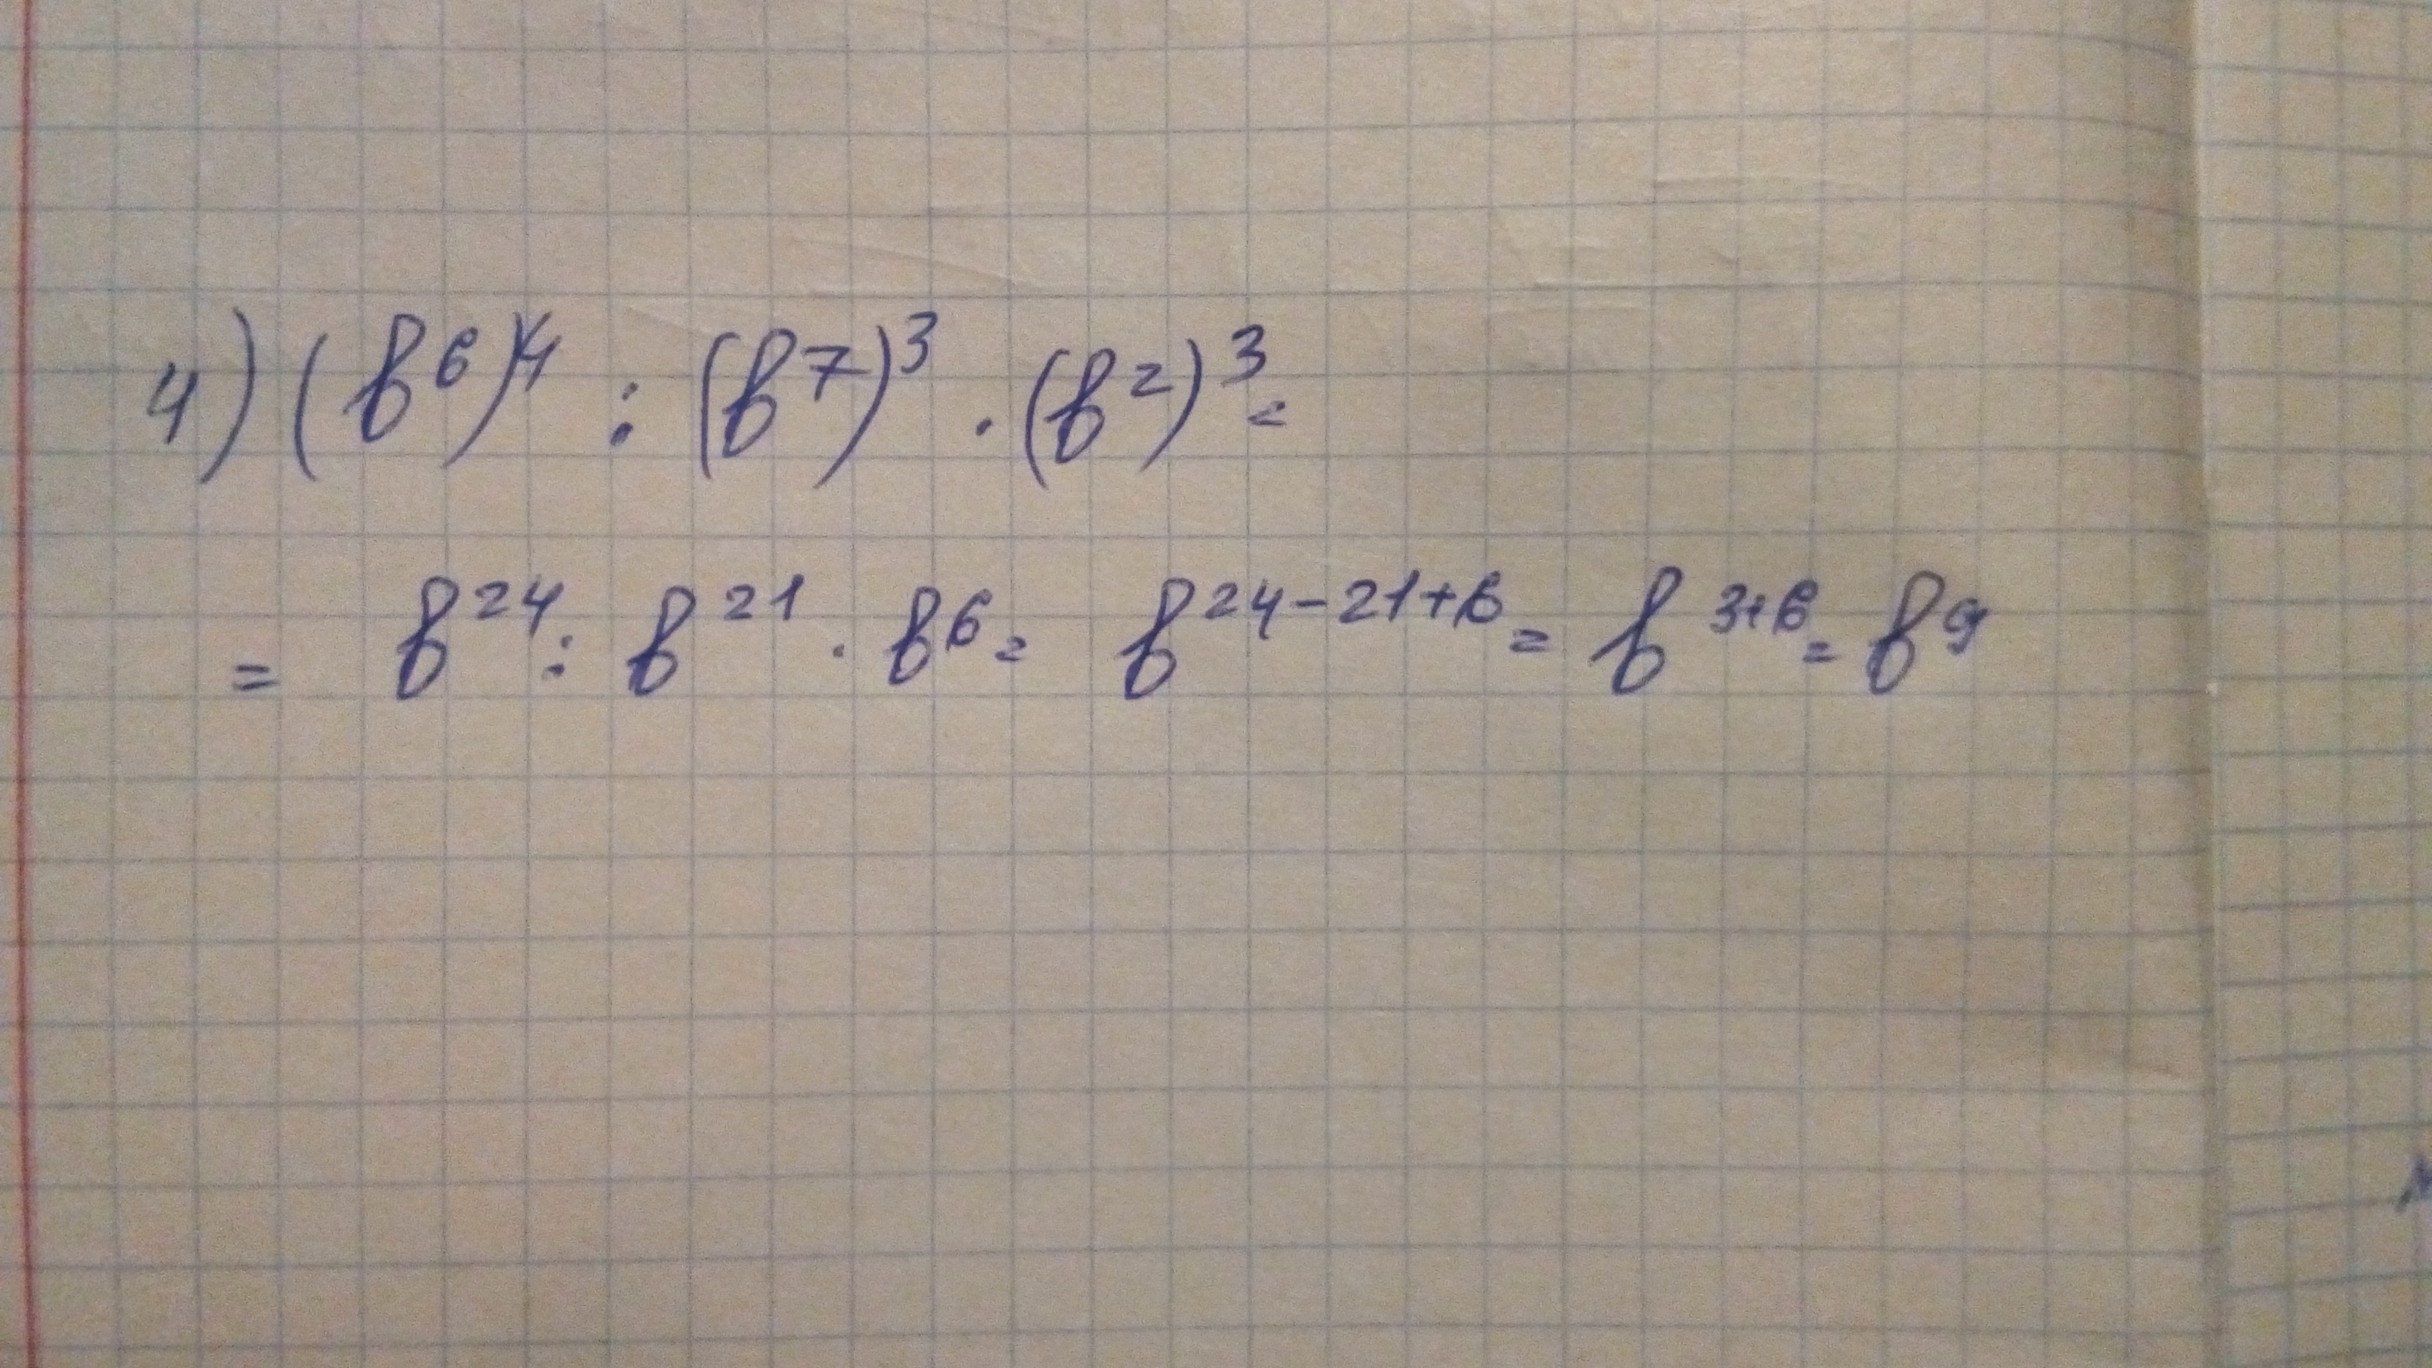 4) (b⁶)⁴ : (b⁷)³ · (b²)³ =
= b²⁴ : b²¹ · b⁶ = b²⁴⁻²¹⁺⁶ = b³⁺⁶ = b⁹